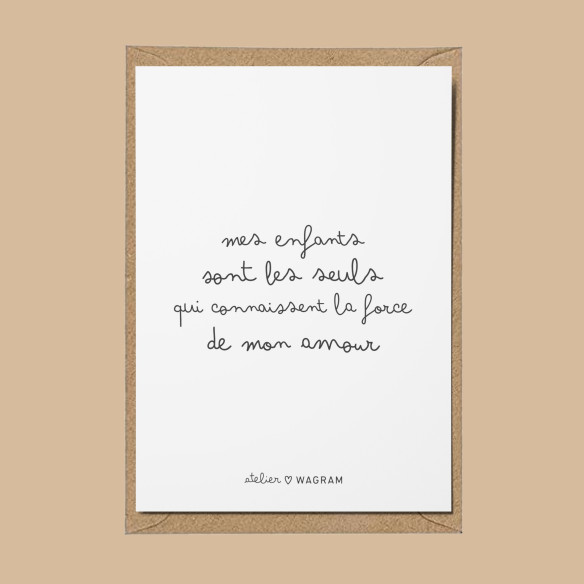 mes enfants
sont les seuls
qui connaissent la force
de mon amour
atelier ♡ WAGRAM